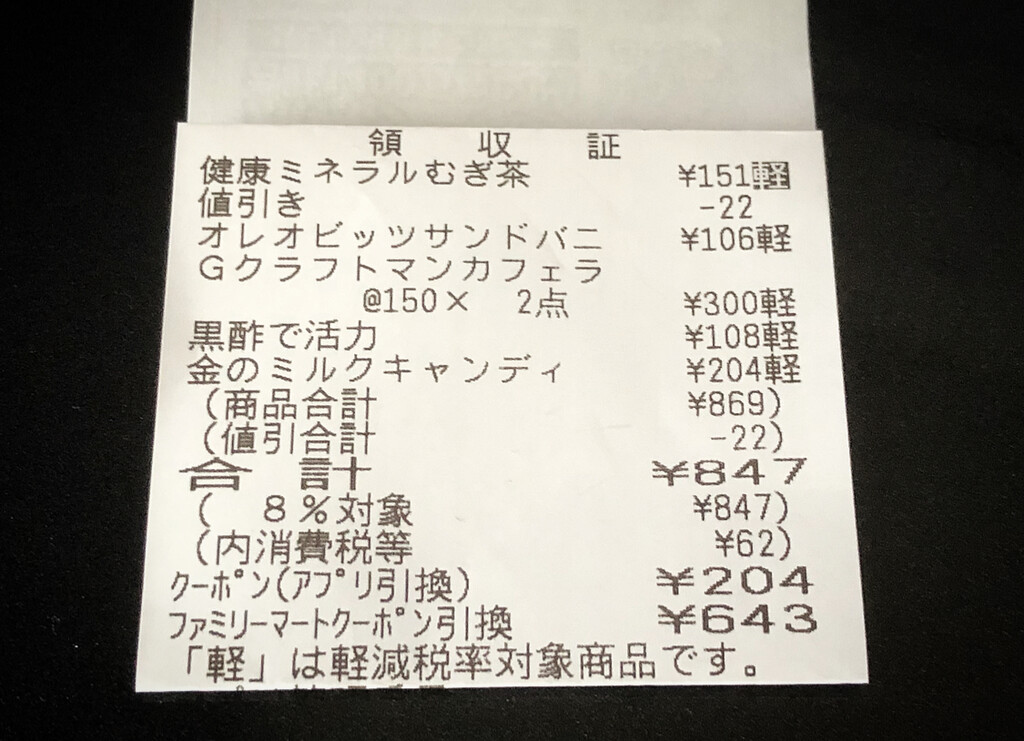 領 収 証
健康ミネラルむぎ茶 ¥151軽
値引き -22
オレオビッツサンドバニ ¥106軽
Gクラフトマンカフェラ
@150× 2点 ¥300軽
黒酢で活力 ¥108軽
金のミルクキャンディ ¥204軽
(商品合計 ¥869)
(値引合計 -22)
合 計 ¥847
( 8%対象 ¥847)
(内消費税等 ¥62)
クーポン(アプリ引換) ¥204
ファミリーマートクーポン引換 ¥643
「軽」は軽減税率対象商品です。